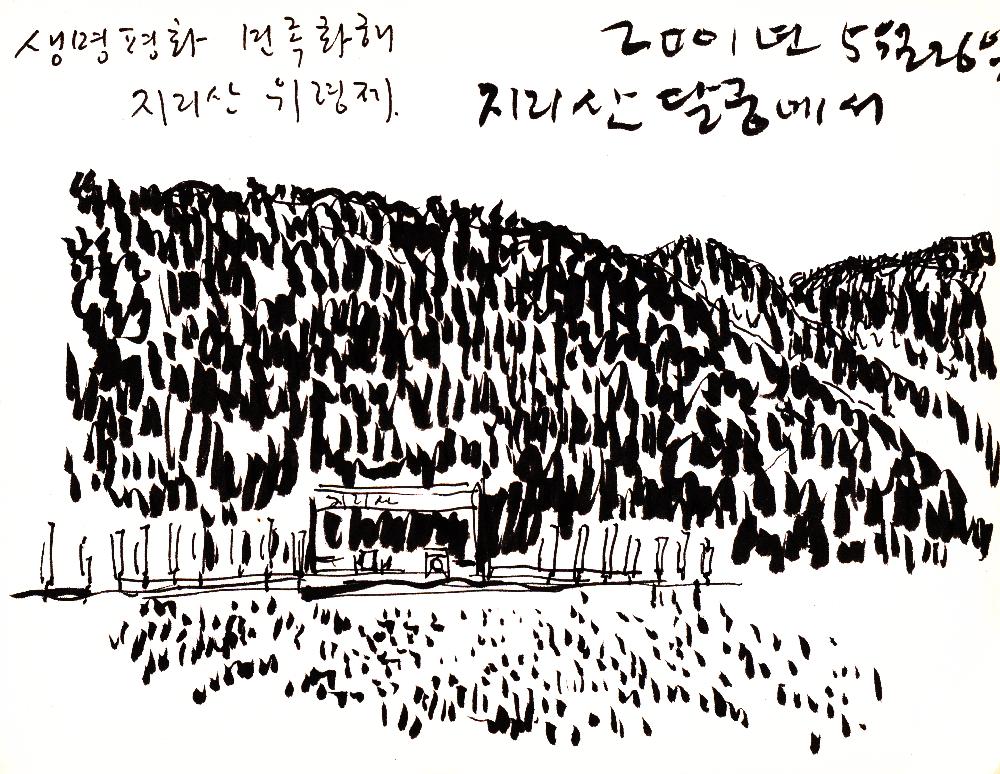 생명평화 민족화해
지리산 위령제.
2001년 5월 26일
지리산 달궁에서
지리산